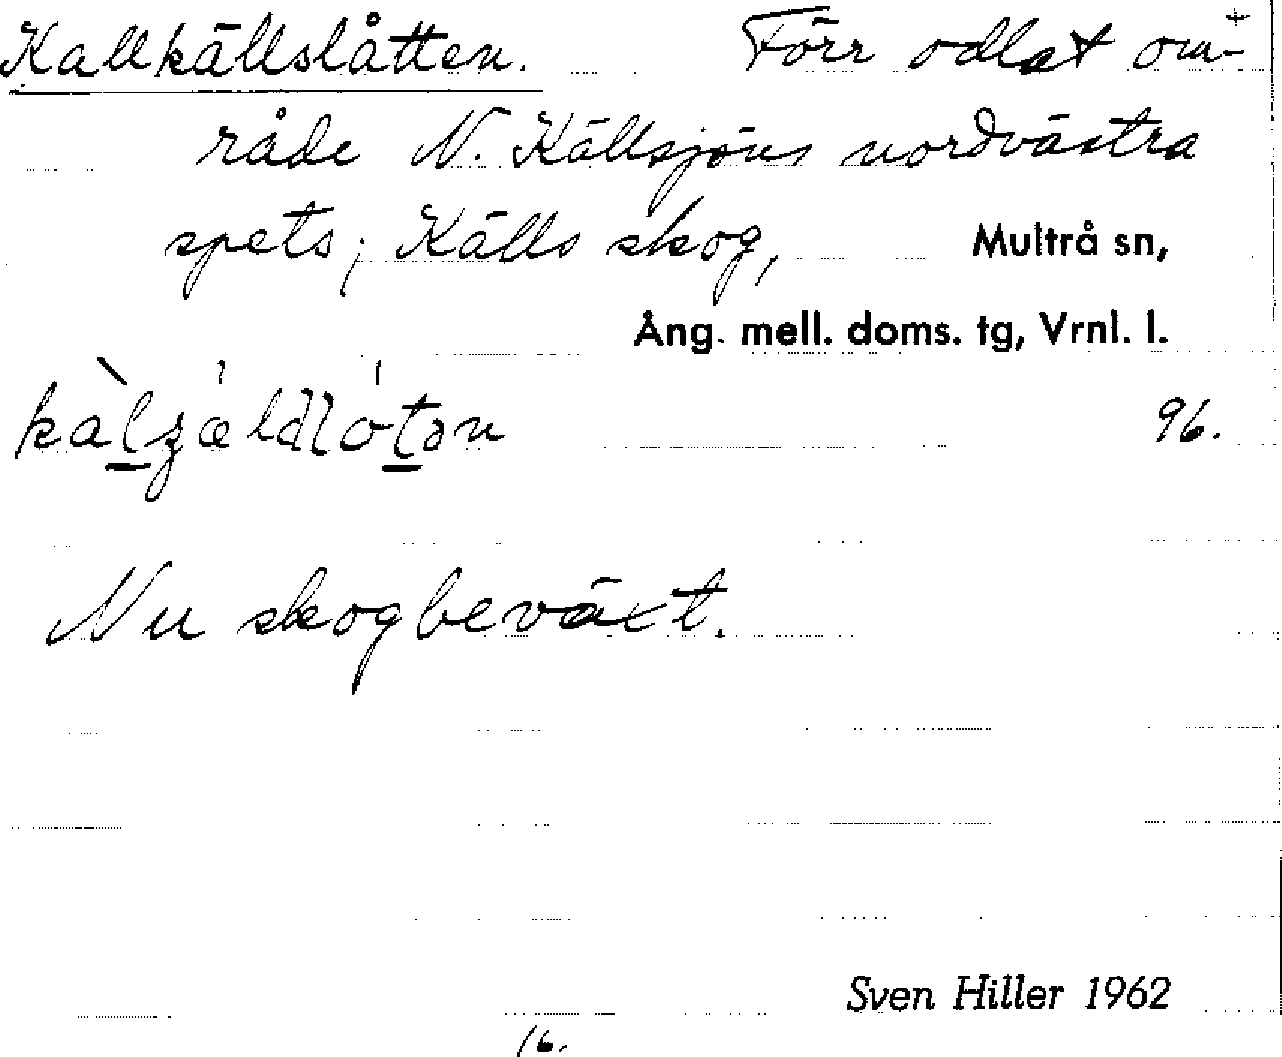 Kallkällslåtten. Förr odlat om-
råde N. Källsjöns nordvästra
spets; Källs skog, Multrå sn,
Ång. mell. doms. tg, Vrnl. l.
96.
Nu skogbeväxt.
Sven Hiller 1962
16.